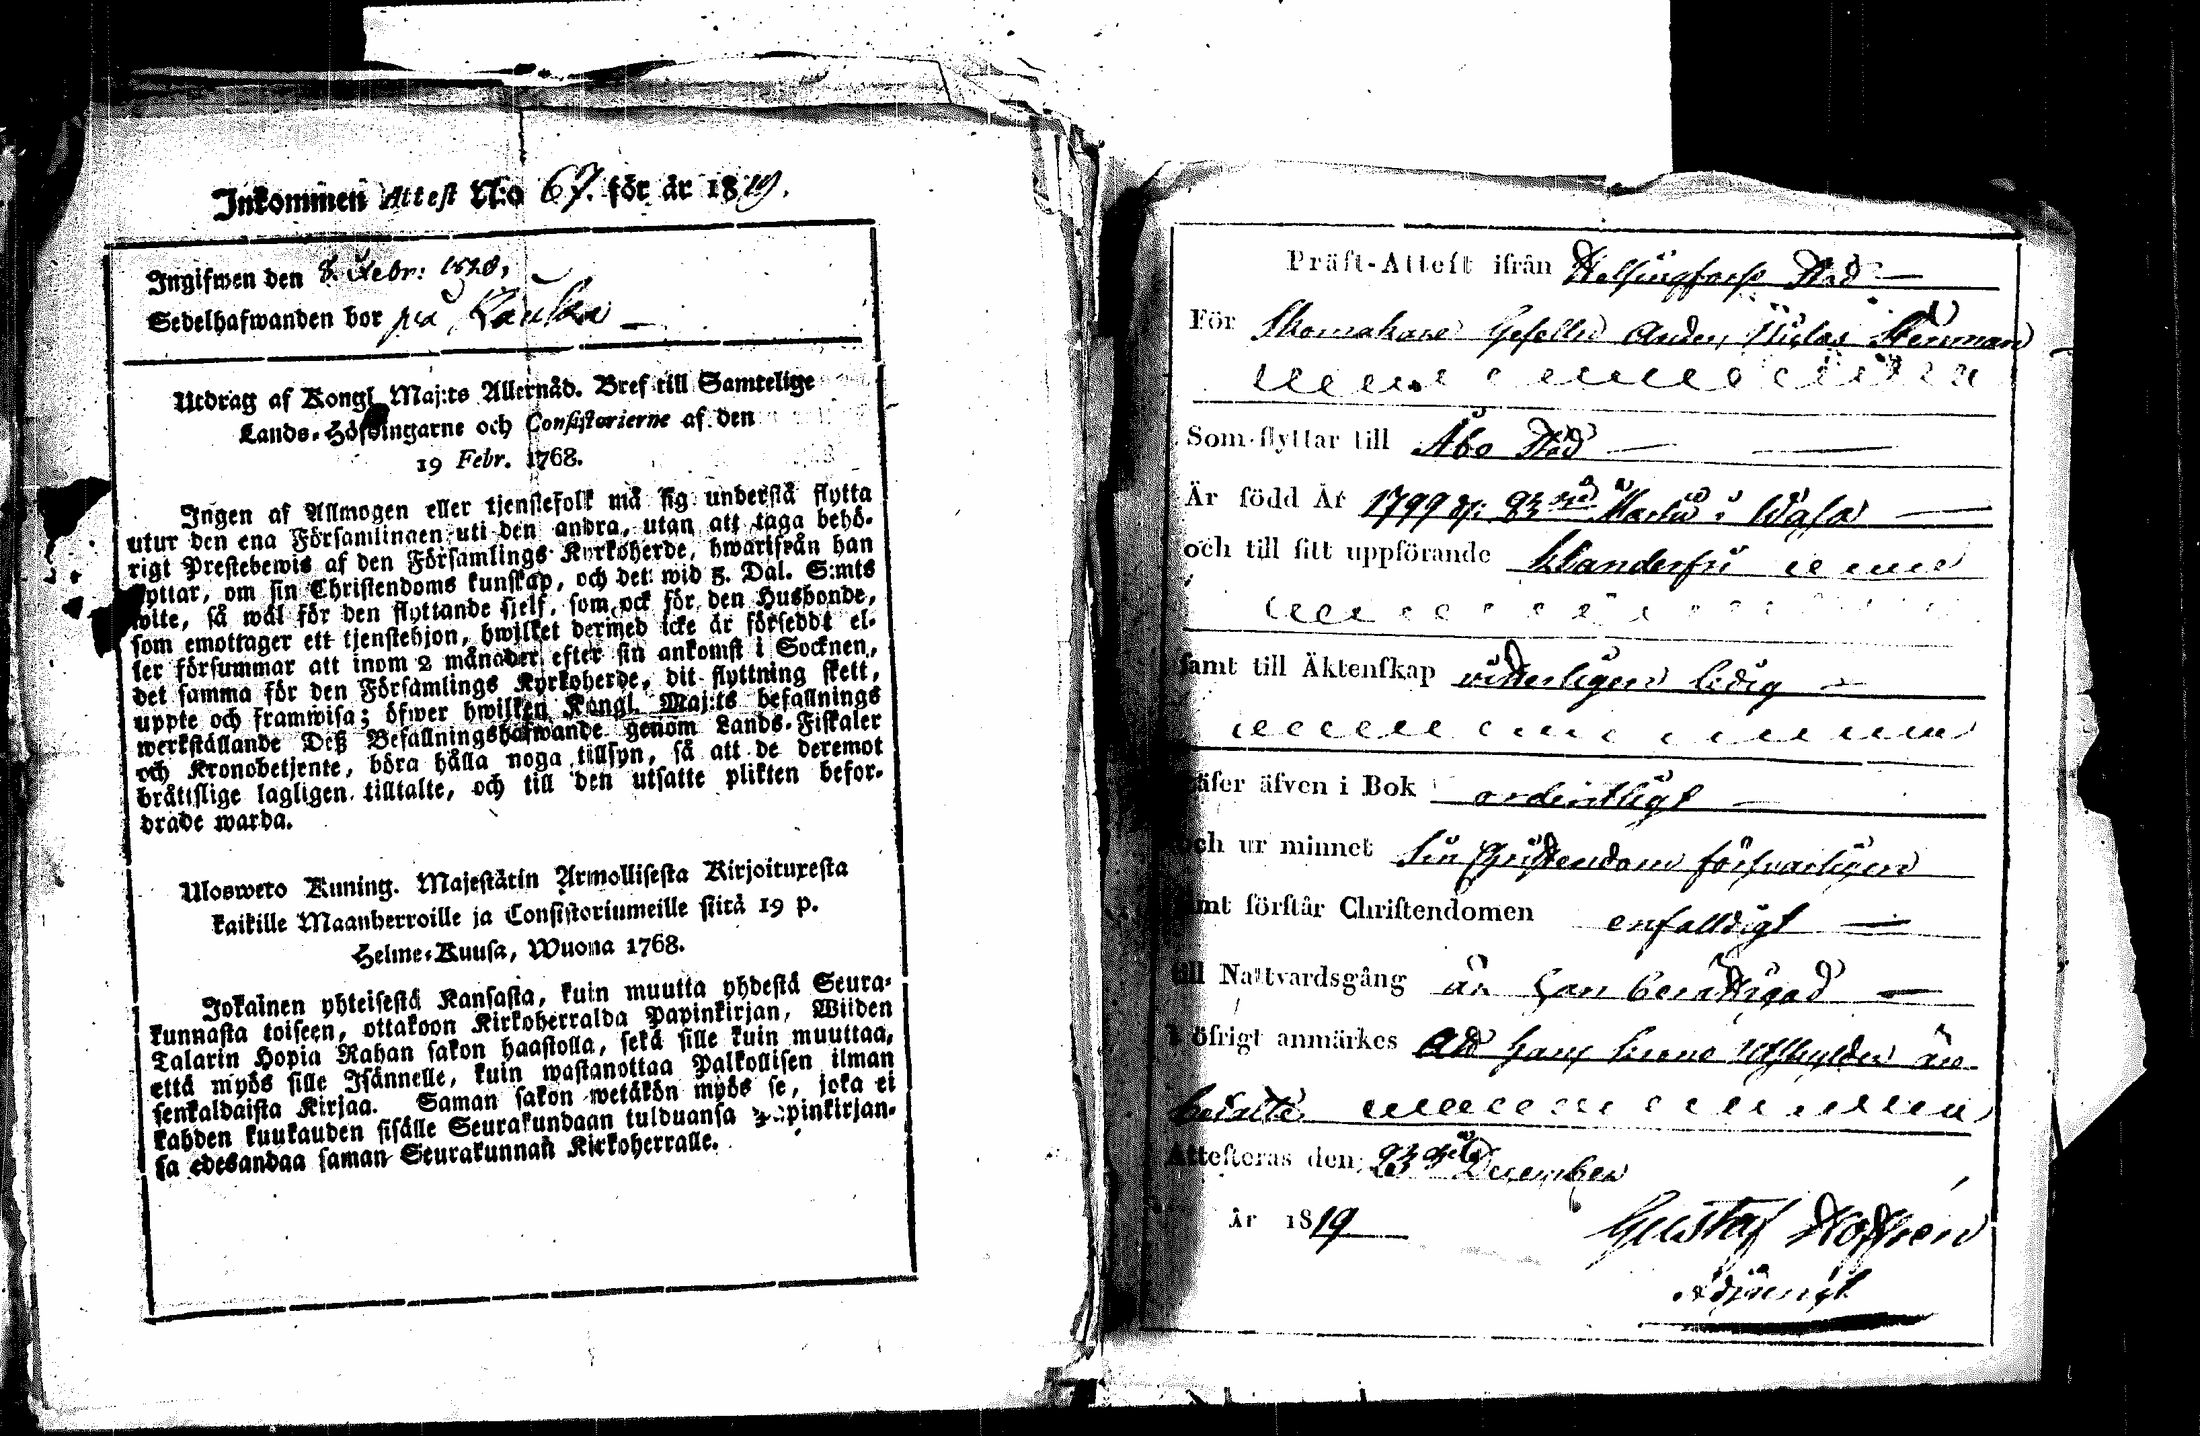 Inkommen Attest N:o 67. för år 1819.
Ingifwen den 8. Febr: 1820,
Sedelhafwanden bor på
Utdrag af Kongl. Maj:ts Allernåd. Bref till Samtelige
Lands-Höfdingarne och Consistorierne af den
19 Febr. 1768.
Ingen af Allmogen eller tjenstefolk må sig understå flytta
utur den ena Församlingen uti den andra, utan att taga behö-
rigt Prestebewis af den Församlings Kyrkoherde, hwarifrån han
flyttar, om sin Christendoms kunskap, och det wid 5. Dal. S:mts
wite, så wål för den flyttande sjelf, som ock för den Husbonde,
som emottager ett tjenstehjon, hwilket dermed icke år försedt el-
ler försummar att inom 2 månader efter sin ankomst i Socknen,
det samma för den Församlings Kyrkoherde, dit flyttning skett,
uppte och framwisa; öfwer hwilken Kongl. Maj:ts befallnings
werkställande Deß Befallningshafwande genom Lands-Fiskaler
och Kronobetjente, böra hålla noga tillsyn, så att de deremot
bråttslige lagligen tilltalte, och till den utsatte plikten befor-
drade warda.
Ulosweto Kuning. Majestätin Armollisesta Kirjoituxesta
kaikille Maanherroille ja Consistoriumeille siitä 19 p.
Helme-Kuusa, Wuonna 1768.
Jokainen yhteisestä Kansasta, kuin muutta yhdestä Seura-
kunnasta toiseen, ottakoon Kirkoherralda Papinkirjan, Wiiden
Talarin Hopia Rahan sakon haastolla, sekä sille kuin muuttaa,
että myös sille Isännelle, kuin wastanottaa Palkollisen ilman
senkaldaista Kirjaa. Saman sakon wetäkön myös se, joka ei
kahden kuukauden sisälle Seurakundaan tulduansa Papinkirjan-
sa edesandaa saman Seurakunnan Kirkoherralle.
Präst-Attest ifrån Helsingfors Stad
För Skomakare Gesellen Anders Niclas Stenman
Som flyttar till Åbo Stad
Är född År 1799 d: 23 Martii i Wasa
och till sitt uppförande Klanderfri
samt till Äktenskap vitterligen ledig
Läser äfven i Bok ordentligt
och ur minnet sin Christendom försvarligen
samt förstår Christendomen enfalldigt
till Nattvardsgång är han berättigad
I öfrigt anmärkes att hans Utskylder äro
betalte
Attesteras den 23 December
år 1819
Gustaf
Adjunct